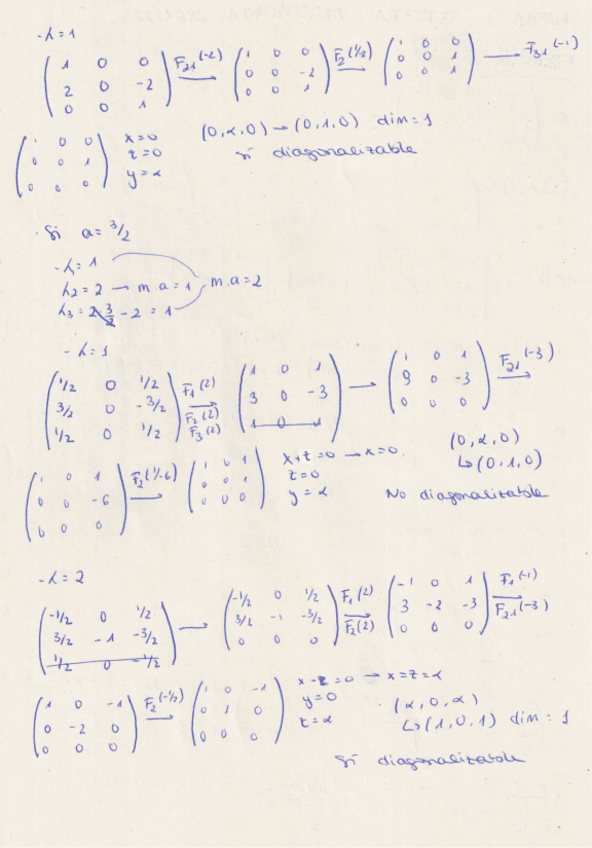 - λ=1
( 1 0 0 / 2 0 -2 / 0 0 1 ) F21(-2) → ( 1 0 0 / 0 0 -2 / 0 0 1 ) F2(1/2) → ( 1 0 0 / 0 0 1 / 0 0 1 ) → F31(-1)
( 1 0 0 / 0 0 1 / 0 0 0 ) x=0 z=0 y=α (0,α,0)→(0,1,0) dim=1
Sí diagonalizable
· Si a= 3/2
- λ=1
λ2=2 → m.a=1 m.a=2
λ3=2·3/2-2=1
- λ=1
( 1/2 0 1/2 / 3/2 0 -3/2 / 1/2 0 1/2 ) F1(2) F2(2) F3(2) → ( 1 0 1 / 3 0 -3 / 1 0 1 ) → ( 1 0 1 / 3 0 -3 / 0 0 0 ) F21(-3) →
( 1 0 1 / 0 0 -6 / 0 0 0 ) F2(1/-6) → ( 1 0 1 / 0 0 1 / 0 0 0 ) x+z=0 → x=0. z=0 y=α (0,α,0) ↳(0,1,0)
No diagonalizable
- λ=2
( -1/2 0 1/2 / 3/2 -1 -3/2 / 1/2 0 -1/2 ) → ( -1/2 0 1/2 / 3/2 -1 -3/2 / 0 0 0 ) F1(2) F2(2) → ( -1 0 1 / 3 -2 -3 / 0 0 0 ) F1(-1) F21(-3) →
( 1 0 -1 / 0 -2 0 / 0 0 0 ) F2(-1/2) → ( 1 0 -1 / 0 1 0 / 0 0 0 ) x-z=0 → x=z=α y=0 z=α (α,0,α) ↳(1,0,1) dim=1
Sí diagonalizable